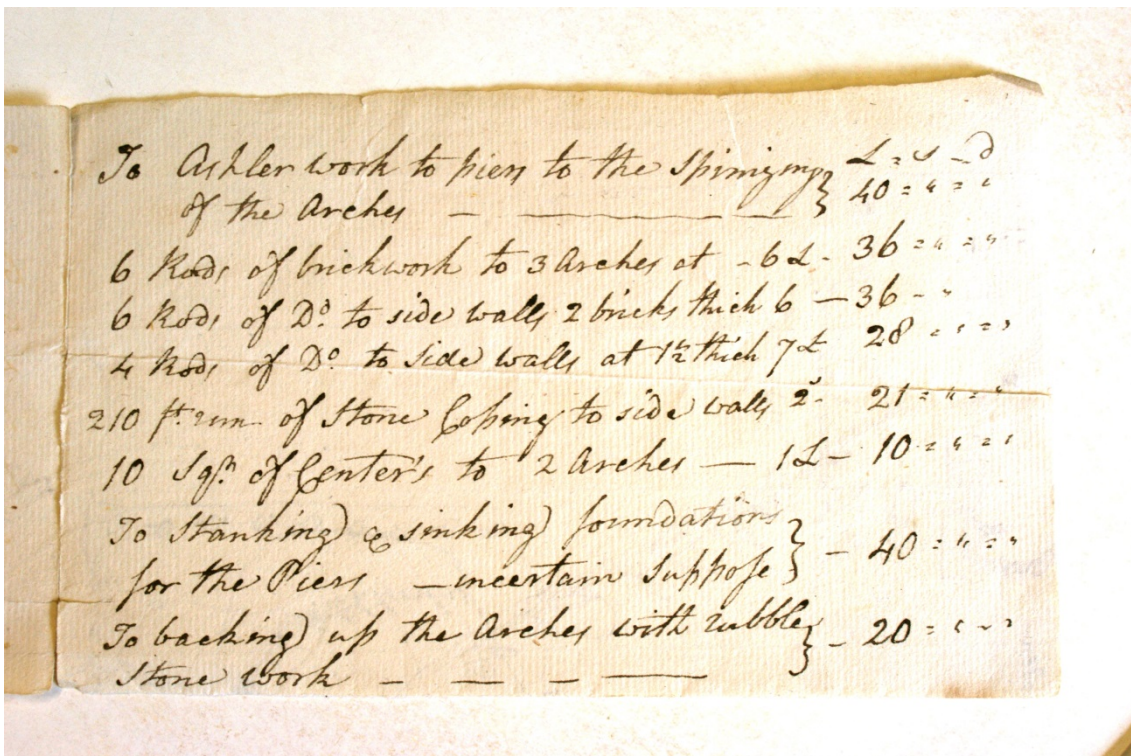 To Ashler work to piers to the Spiniging } £ = s - d
of the Arches - — — } 40 = " = "
6 Rods of brickwork to 3 Arches at - 6£ - 36 = " = "
6 Rods of Do. to side walls 2 bricks thick 6 - 36 - "
4 Rods of Do. to side walls at 1½ thick 7£ 28 = " = "
210 ft. run of Stone Coping to side walls 2s- 21 = " = "
10 Sqrs. of Center's to 2 Arches — 1£ - 10 = " = "
To Stanking & sinking foundations }
for the Piers - uncertain Suppose } - 40 = " = "
To backing up the Arches with rubble } - 20 = " - "
Stone work - - - —